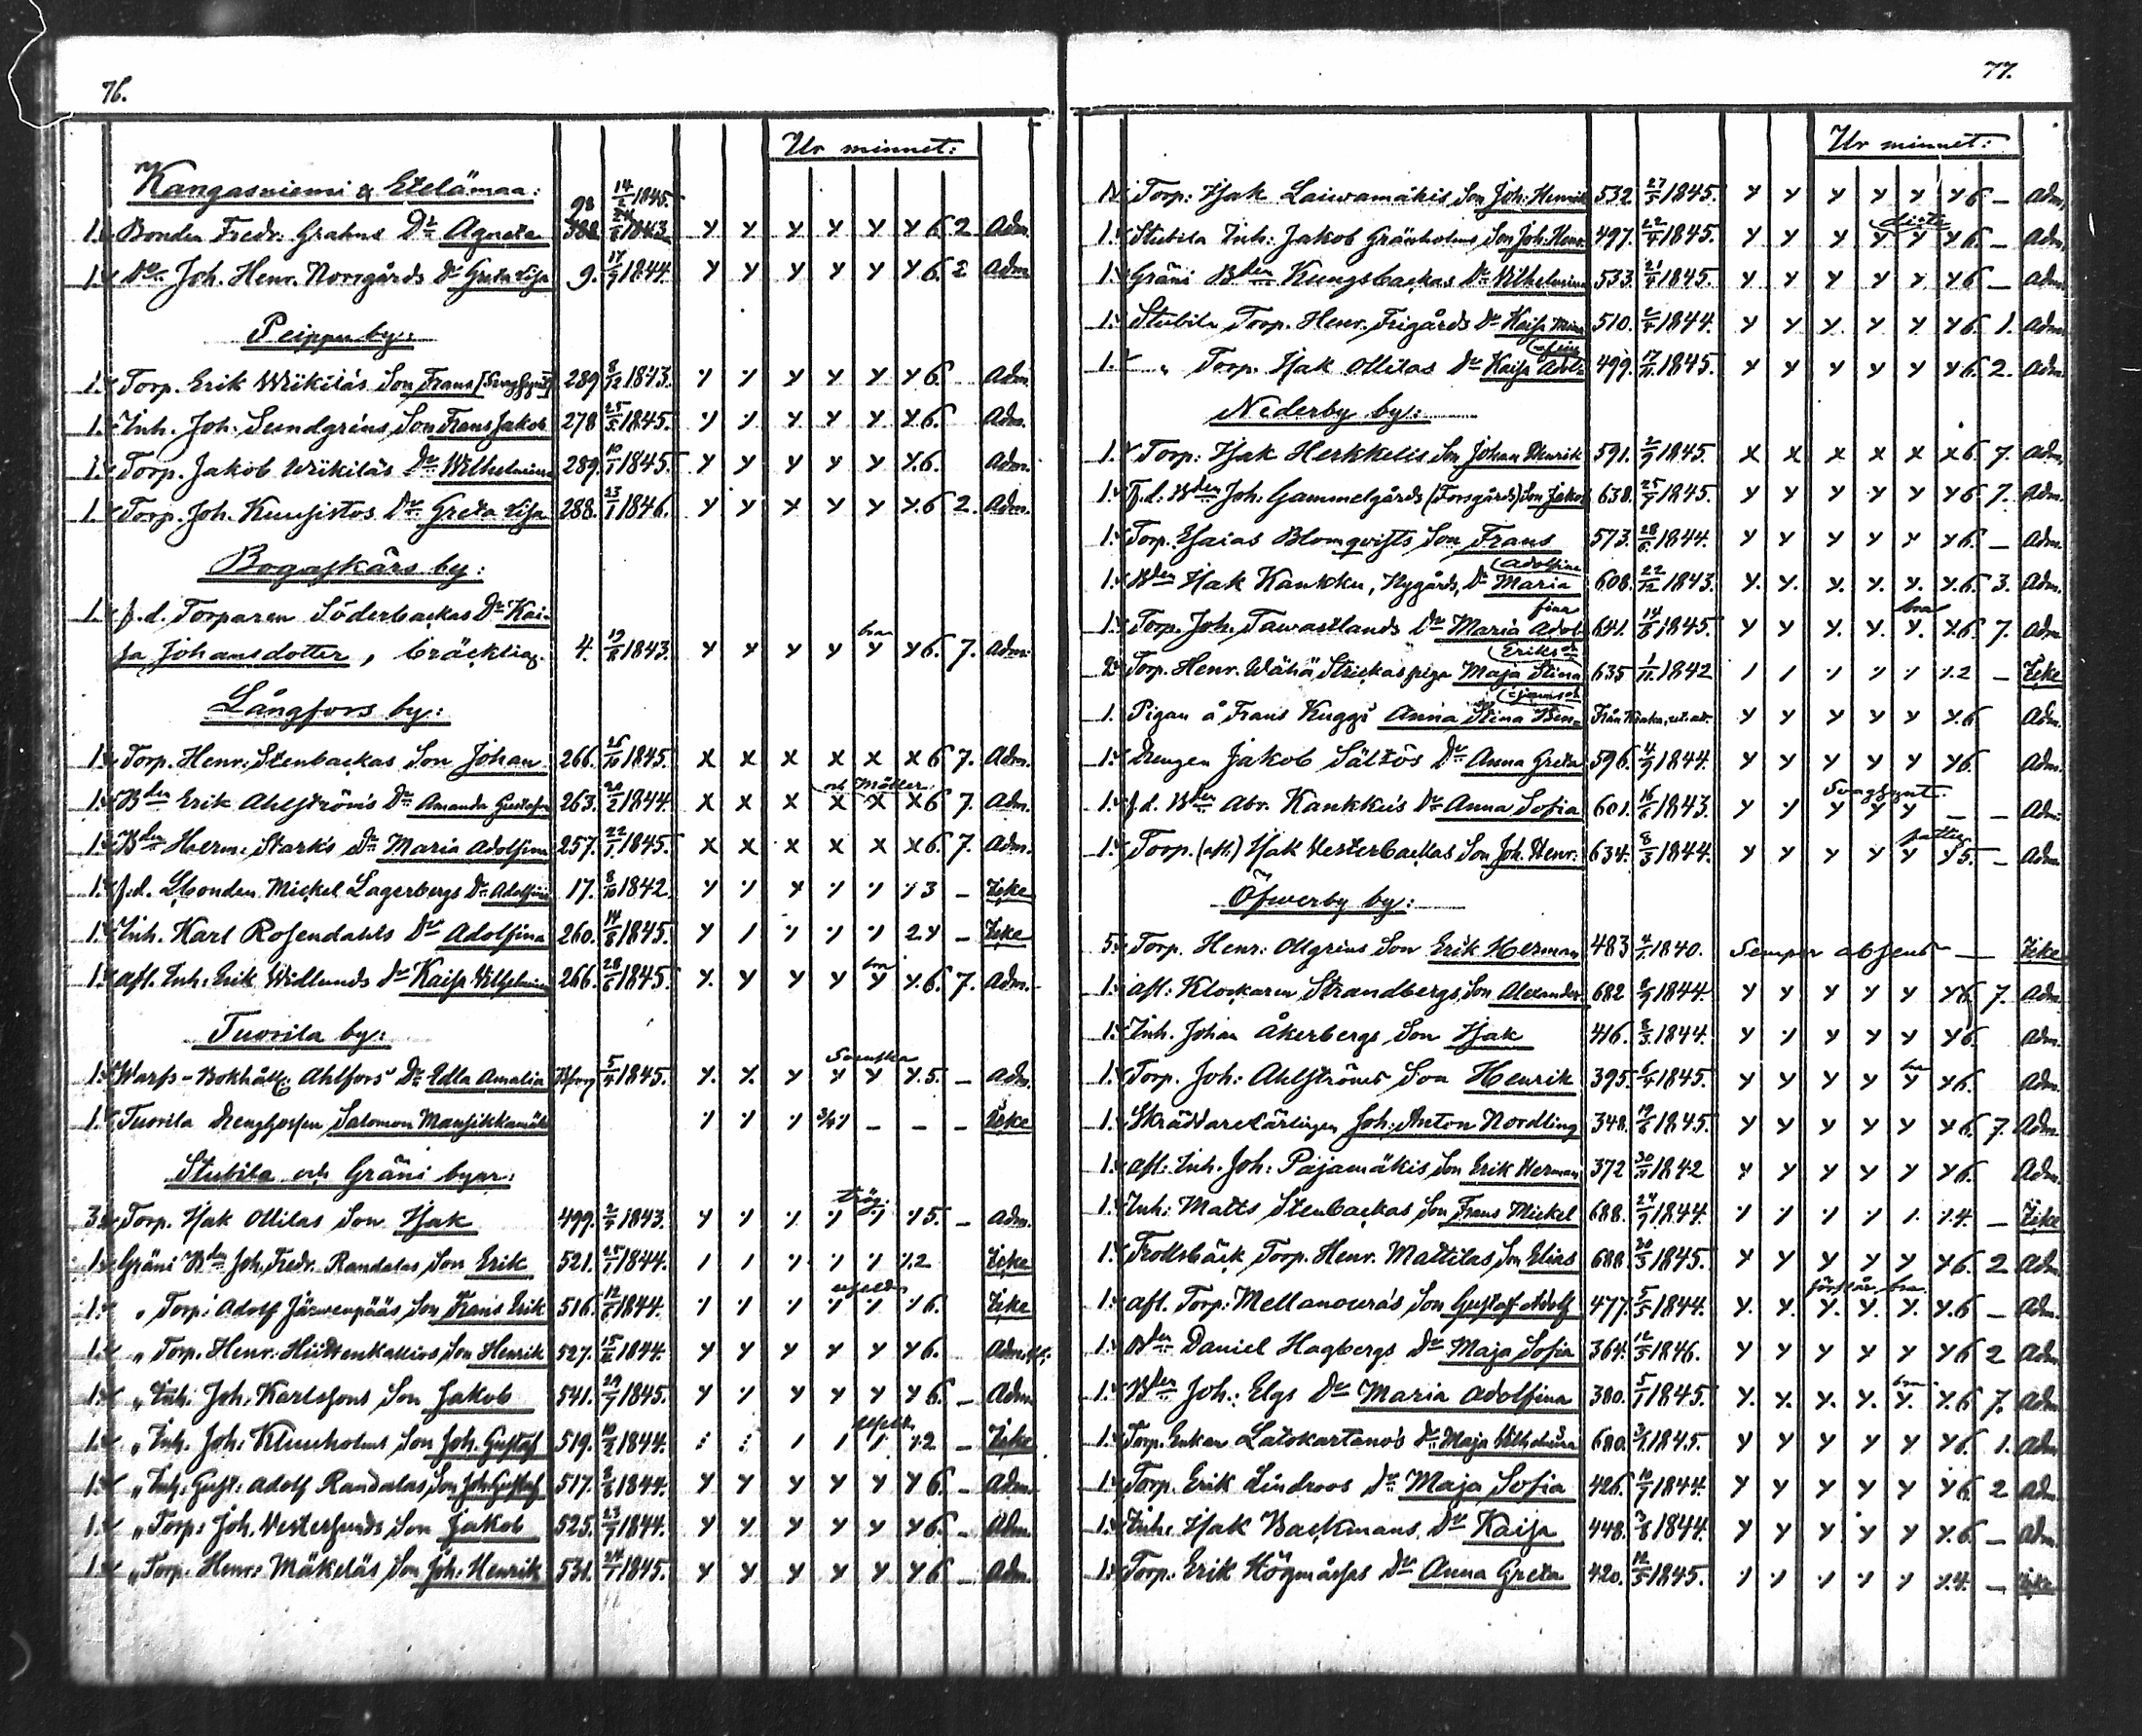 76.
Ur minnet:
Kangasniemi & Etelämaa:
98 14/2 1845.
1. Bonden Fredr. Grahns Dr Agneta 388 1843. y y y y y y 6 2 Adm.
1. Do. Joh. Henr. Norrgårds Dr Greta Lisa 9. 17/9 1844. y y y y y y 6. 2 Adm
Peippu by:
1. Torp. Erik Wikiläs Son Frans 289 8/12 1843. y y y y y y 6. Adm.
1. Inh. Joh. Sundgréns Son Frans Jakob 278 25/5 1845. y y y y y y 6. Adm.
1. Torp. Jakob Wikiläs Dr Wilhelmina 289. 10/1 1845. y y y y y y 6. Adm.
1. Torp. Joh. Kuusistos Dr Greta Lisa 288. 23/1 1846. y y y y y y 6 2. Adm.
Bogaskärs by:
1. f.d. Torparen Söderbackas Dr Kai-
sa Johansdotter, bräcklig. 4. 1843. y y y y bra y y 6. 7. Adm.
Långfors by:
1. Torp. Henr. Stenbackas Son Johan 266. 1845. x x x x x x 6 7. Adm.
1. Bden Erik Ahlströms Dr Amanda Gustafva 263. 20/2 1844. x x x x x x 6 7. Adm.
1. Bden Herm. Starks Dr Maria Adolfina 257. 22/1 1845. x x x x x x 6. 7. Adm.
1. f.d. Bonden Mickel Lagerbergs Dr Adolfina 17. 8/10 1842. 3 – Icke
1. Inh. Karl Rosendahls Dr Adolfina 260. 14/8 1845. – Icke
1. afl. Inh. Erik Widlunds Dr Kaisa Wilhelmina 266. 1845. y y y y bra y y 6. 7. Adm.
Tuorila by:
1. Warfs-Bokhåll. Ahlfors' Dr Edla Amalia 5/4 1845. y y y Svenska y y y 5. – Adm.
1. Tuorila Drenghossen Salomon Mansikkamäki – – – Icke
Stubila och Gräni byar:
3. Torp. Isak Ollilas Son Isak 499. 1843. trög 5. – Adm.
1. Gräni Bden Joh. Fredr. Randalas Son Erik 521. 25/7 1844. 2 Icke
1. " Torp. Adolf Järvenpääs Son Frans Erik 516. 1844. 6. Icke
1. " Torp. Henr. Hiittenkallios Son Henrik 527. 1844. y y y y y y 6. Adm.
1. " Inh. Joh. Karlssons Son Jakob 541. 29/7 1845. y y y y y y 6. – Adm.
1. " Inh. Joh. Klinholms Son Joh. Gustaf 519. 1844. 2 – Icke
1. " Inh. Gust. Adolf Randalas Son Joh. Gustaf 517. 1844. y y y y y y 6. – Adm.
1. " Torp. Joh. Westersunds Son Jakob 525. 23/7 1844. y y y y y y 6. – Adm.
1. " Torp. Henr. Mäkeläs Son Joh. Henrik 531. 1845. y y y y y y 6 – Adm.
77.
Ur minnet:
Torp: Isak Laiwamäkis Son Joh: Henrik 532 1845. y y y y y y 6 – Adm.
1. Stubila Inh. Jakob Gränholms Son Joh. Henr. 497. 1845. y y y y y y 6. – Adm.
1. Gräni Bden Kungsbackas Dr Wilhelmina 533. 21/4 1845. y y y y y y 6 – Adm.
1. Stubila Torp. Henr. Frigårds Dr Kaisa Mina 510. 1844. y y y y y y 6. 1. Adm.
1. " Torp. Isak Ollilas Dr Kaisa Adol- (=fina 499. 17/11 1845. y y y y y y 6. 2. Adm.
Nederby by:
1. Torp: Isak Herkkelis Son Johan Henrik 591. 2/9 1845. x x x x x x 6. 7. Adm.
1. f.d. Bden Joh. Gammelgårds (Forsgårds) Son Jakob 638. 25/7 1845. y y y y y y 6. 7. Adm.
1. Torp. Esaias Blomqvists Son Frans 573. 28/6 1844. y y y y y y 6. – Adm.
1. Bden Isak Kankku, Nygårds, Dr Maria (Adolfina 608. 22/12 1843. y. y. y. y. y. y. 6. 3. Adm.
1. Torp. Joh. Tawastlands Dr Maria Adol- fina 641. 14/8 1845. y y y. y. bra y. y. 6. 7. Adm
2. Torp. Henr. Wähä Strickas piga Maja Stina (Eriksdr 635 1/11 1842 2 – Icke
1. Pigan å Frans Kuggs Anna Stina Ben- (=jamsdr y y y y y y. 6 Adm.
1. Drengen Jakob Sältös Dr Anna Greta 596. 4/9 1844. y y y y y y 6. Adm.
1. f.d. Bden Abr. Kankkus Dr Anna Sofia 601. 16/6 1843. y y Svagsynt. y y y – – Adm.
1. Torp. (afl.) Isak Westerbackas Son Joh. Henr. 634. 8/3 1844. y y y y y y 5. – Adm.
Öfwerby by:
5. Torp. Henr: Ollgréns Son Erik Herman 483 1840. Semper absens – Icke
1. afl. Klockaren Strandbergs Son Alexander 682 1844. y y y y y y 6. 7. Adm.
1. Inh. Johan Åkerbergs Son Isak 416. 8/3 1844. y y y y y y 6. Adm.
1. Torp. Joh: Ahlströms Son Henrik 395. 6/4 1845. y y y y bra y y 6. Adm.
1. Skräddarelärlingen Joh. Anton Nordling 348. 1845. y y y y y y 6. 7. Adm
1. afl. Inh. Joh: Pajamäkis Son Erik Herman 372 30/11 1842 y y y y y y 6. Adm.
1. Inh: Matts Stenbackas Son Frans Mickel 688. 24/9 1844. 4. – Icke
1. Trollsbäck Torp. Henr. Mattilas Son Elias 688 20/3 1845. y y y y y y 6. 2 Adm.
1. afl. Torp: Mellanowas Son Gustaf Adolf 477. 5/5 1844. y. y. förstår bra y. y. y. y. 6 – Adm.
1. Bden Daniel Hagbergs Dr Maja Sofia 364. 12/3 1846. y y y y y y 6 2 Adm
1. Bden Joh: Elgs Dr Maria Adolfina 380. 5/1 1845. y. y. y. y. bra y. y. 6 7. Adm
1. Torp. Enkan Latokartanos Dr Maja Wilhelmina 680. 1845. y y y y y y 6. 1. Adm
1. Torp. Erik Lindroos Dr Maja Sofia 426. 10/7 1844. y y y y y y 6 2 Adm.
1. Inh. Isak Backmans Dr Kaisa 448. 1844. y y y y y y. 6. – Adm.
1. Torp. Erik Högmåssas Dr Anna Greta 420. 12/5 1845. 4. – Icke